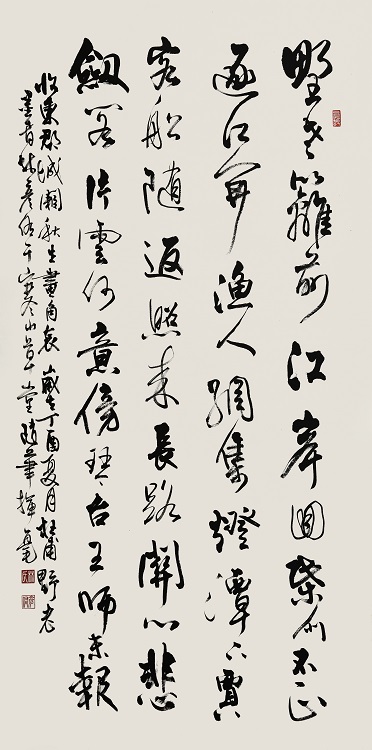 野老籬前江岸回柴門不正
逐江開漁人網集澄潭下賈
客船隨返照來長路關心悲
劍閣片雲何意傍琴台王師未報
收東郡城闕秋生畫角哀歲在丁酉夏月杜甫野老
寒山草堂揮毫